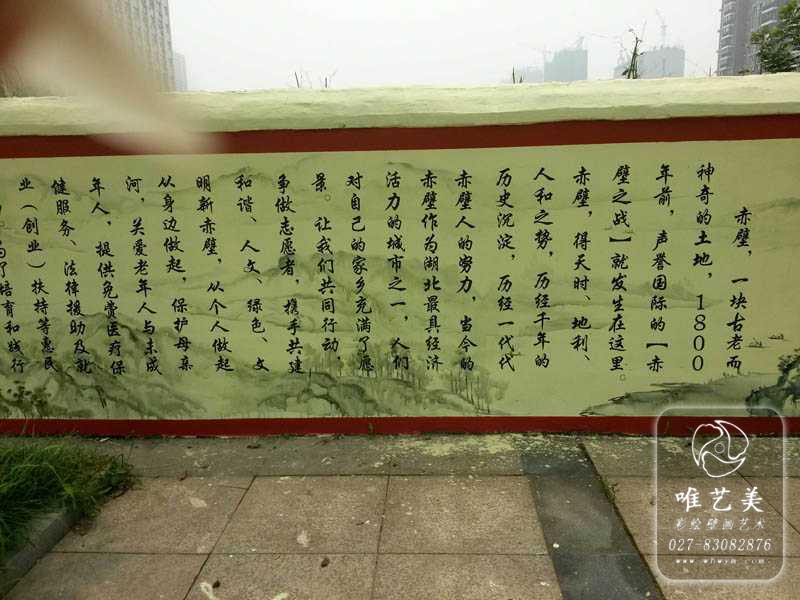 赤壁，一块古老而
神奇的土地，1800
年前，声誉国际的【赤
壁之战】就发生在这里。
赤壁，得天时、地利、
人和之势，历经千年的
历史沉淀，历经一代代
赤壁人的努力，当今的
赤壁作为湖北最具经济
活力的城市之一，人们
对自己的家乡充满了愿
景。让我们共同行动，
争做志愿者，携手共建
和谐、人文、绿色、文
明新赤壁，从个人做起
从身边做起，保护母亲
河，关爱老年人与未成
年人，提供免费医疗保
健服务、法律援助及就
业（创业）扶持等惠民
为了培育和践行
唯艺美
彩绘壁画艺术
027-83082876
www.whwym.com